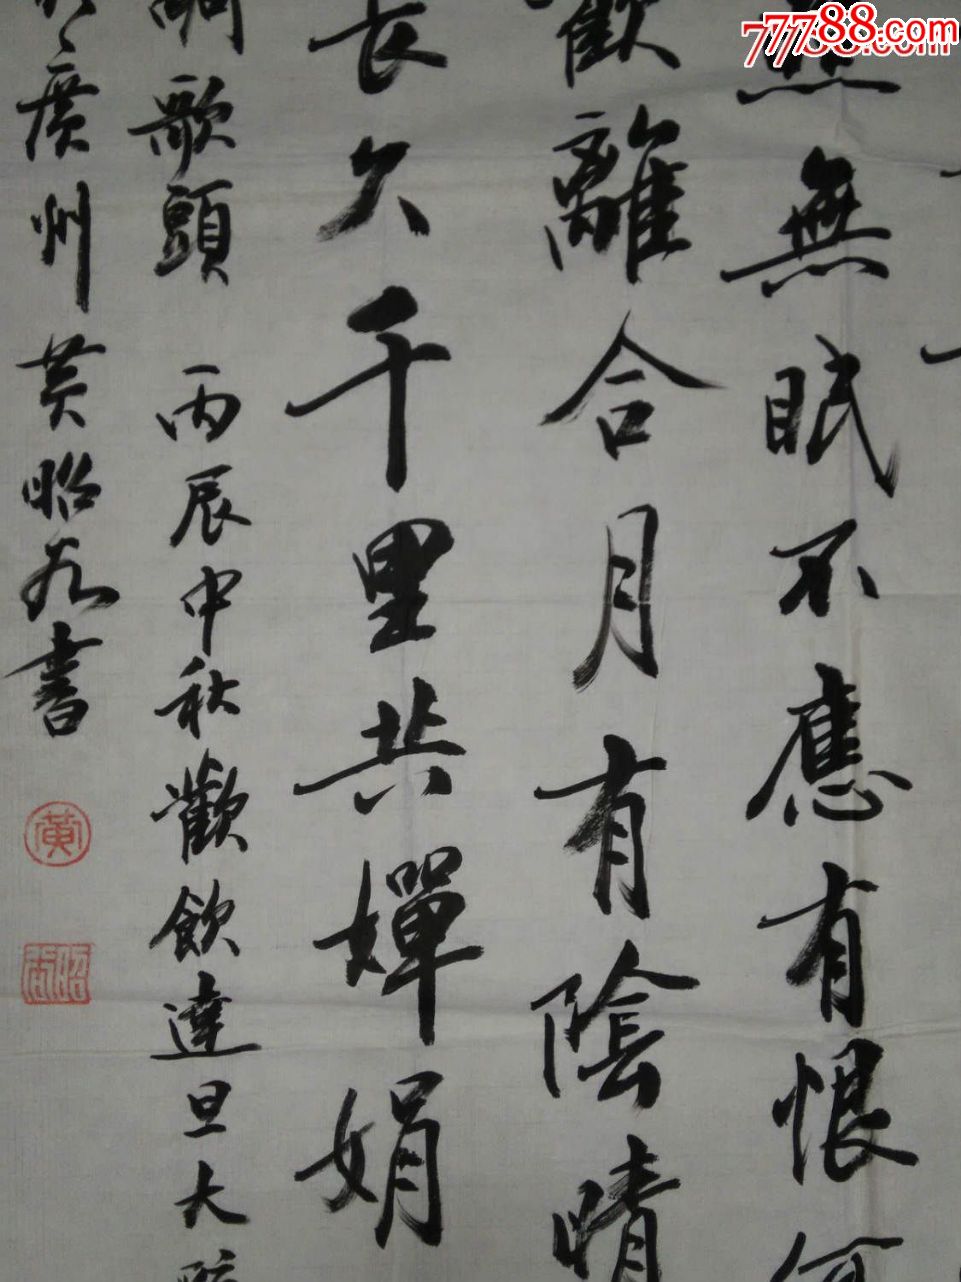 77788.com
照無眠不應有恨何
歡離合月有陰晴
長久千里共嬋娟
調歌頭 丙辰中秋歡飲達旦大醉
廣州黃昭書
黃
昭